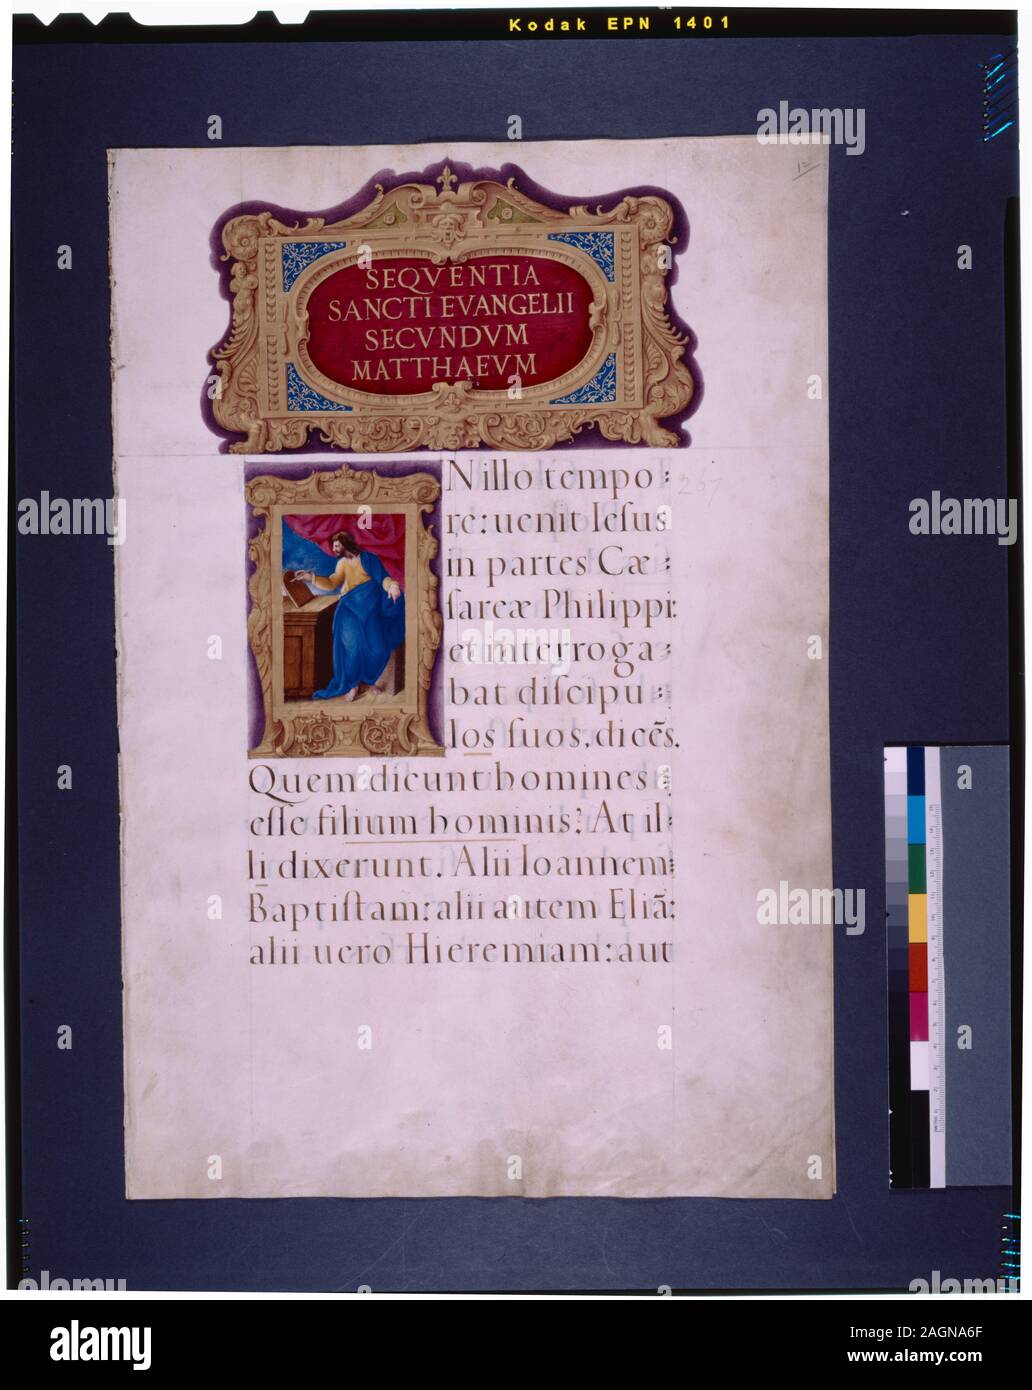 Kodak EPN 1401
12
SEQVENTIA
SANCTI EVANGELII
SECVNDVM
MATTHAEVM
Nillo tempo⸗
re: uenit Iesus
in partes Cæ⸗
ſareæ Philippi:
et interroga⸗
bat diſcipu⸗
los ſuos, dicēs.
Quem dicunt homines
eſſe filium hominis? At il⸗
li dixerunt. Alii Ioannem
Baptiſtam: alii autem Eliā:
alii uero Hieremiam: aut
267
alamy
alamy
alamy
alamy
alamy
alamy
Image ID: 2AGNA6F
www.alamy.com